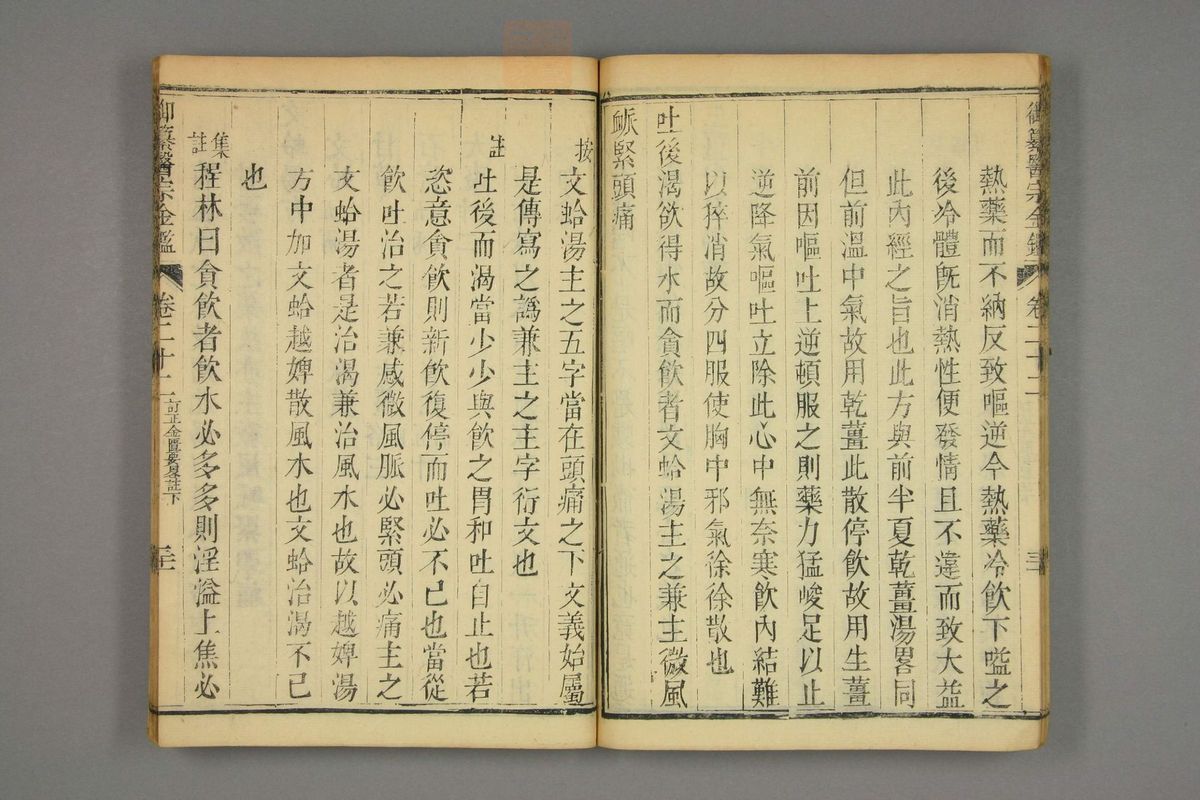 御纂醫宗金鑑 卷二十二 三十
熱藥而不納反致嘔逆今熱藥冷飲下嗌之
後冷體旣消熱性便發情且不違而致大益
此內經之旨也此方與前半夏乾薑湯畧同
但前溫中氣故用乾薑此散停飲故用生薑
前因嘔吐上逆頓服之則藥力猛峻足以止
逆降氣嘔吐立除此心中無奈寒飲內結難
以猝消故分四服使胸中邪氣徐徐散也
吐後渴欲得水而貪飲者文蛤湯主之兼主微風
脈緊頭痛
按 文蛤湯主之五字當在頭痛之下文義始屬
是傳寫之譌兼主之主字衍文也
註 吐後而渴當少少與飲之胃和吐自止也若
恣意貪飲則新飲復停而吐必不已也當從
飲吐治之若兼感微風脈必緊頭必痛主之
文蛤湯者是治渴兼治風水也故以越婢湯
方中加文蛤越婢散風水也文蛤治渴不已
也
集註 程林曰貪飲者飲水必多多則淫溢上焦必
御纂醫宗金鑑 卷二十二 訂正金匱要畧註下 三十一